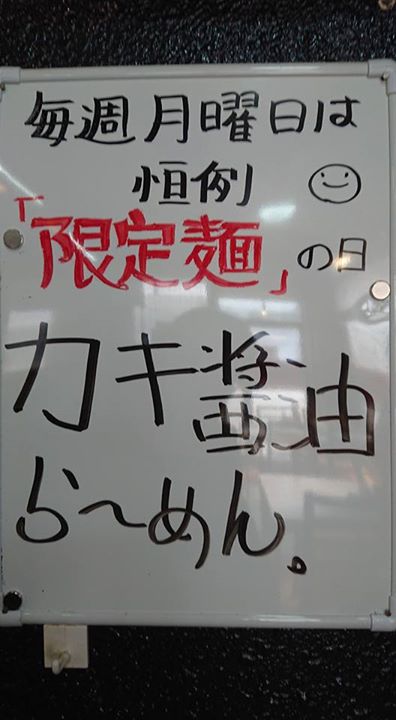 毎週月曜日は
恒例
「限定麺」の日
カキ醤油
らーめん。